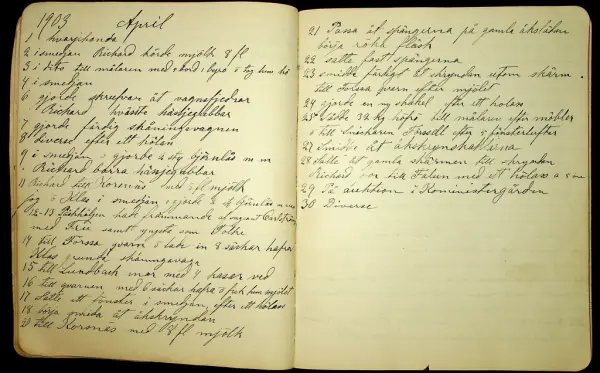 1903 April
1 hvarjehanda
2 i smedjan Richard körde mjölk 8 fl
3 i dito till målaren med i byrå o tog hem hö
4 i smedjan
6 gjorde skrufvar åt vagnsfjedrar
Richard hvässte hässjegubbar
7 gjorde färdig skåningevagnen
8 diverse efter ett hölas
9 i smedjan o gjorde 2 dy björnlås m m
Richard barra hässjegubbar
11 Richard till Korsnäs med 8 fl mjölk
jag o Klas i smedjan gjorde 2 st björnlås m m
12-13 Påskhelgen hade främmande
med Fru samt yngste son
14 till Forssa qvarn o lade in 8 säckar hafra
Klas grunda skåningevagn
15 till Lundbäck mor med 4 hasar ved
16 till qvarnen med 6 säckar hafra o fick hem mjölet
17 satte ett fönster i smedjan, efter ett hölass
18 börja smida åt åkskryndan
20 till Korsnäs med 8 fl mjölk
21 Passa åt spångerna på gamla åkslädan
börja röka fläsk
22 satte fast spångerna
23 smidde färdigt åt skryndan utom skärm
till Forssa qvarn efter mjölet
24 gjorde en ny skakel efter ett hölas
25 Sålde 32 kg höfrö till målaren efter möbler
o till Snickaren Forssell efter 5 fönsterlufter
27 Smidde åt åkskrynskaklarna
28 satte åt gamla skärmen till skryndan
Richard for till Falun med ett hölass
29 På auktion i Komministergården
30 Diverse